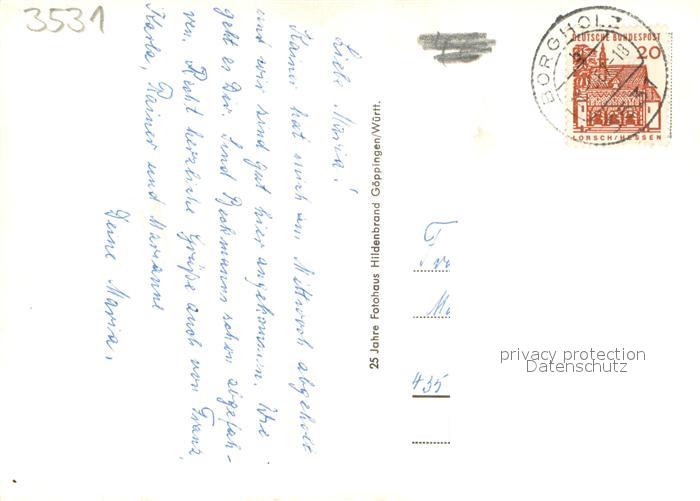 3531
Liebe Maria!
Rainer hat mich am Mittwoch abgeholt
und wir sind gut hier angekommen. Wie
geht es Dir. Sind Beckmanns schon abgefah-
ren. Recht herzliche Grüße auch von Franz,
Karla, Rainer und Marianne
Deine Maria.
25 Jahre Fotohaus Hildenbrand Göppingen/Württ.
BORGHOLZ
18
DEUTSCHE BUNDESPOST
20
LORSCH/HESSEN
435
privacy protection
Datenschutz